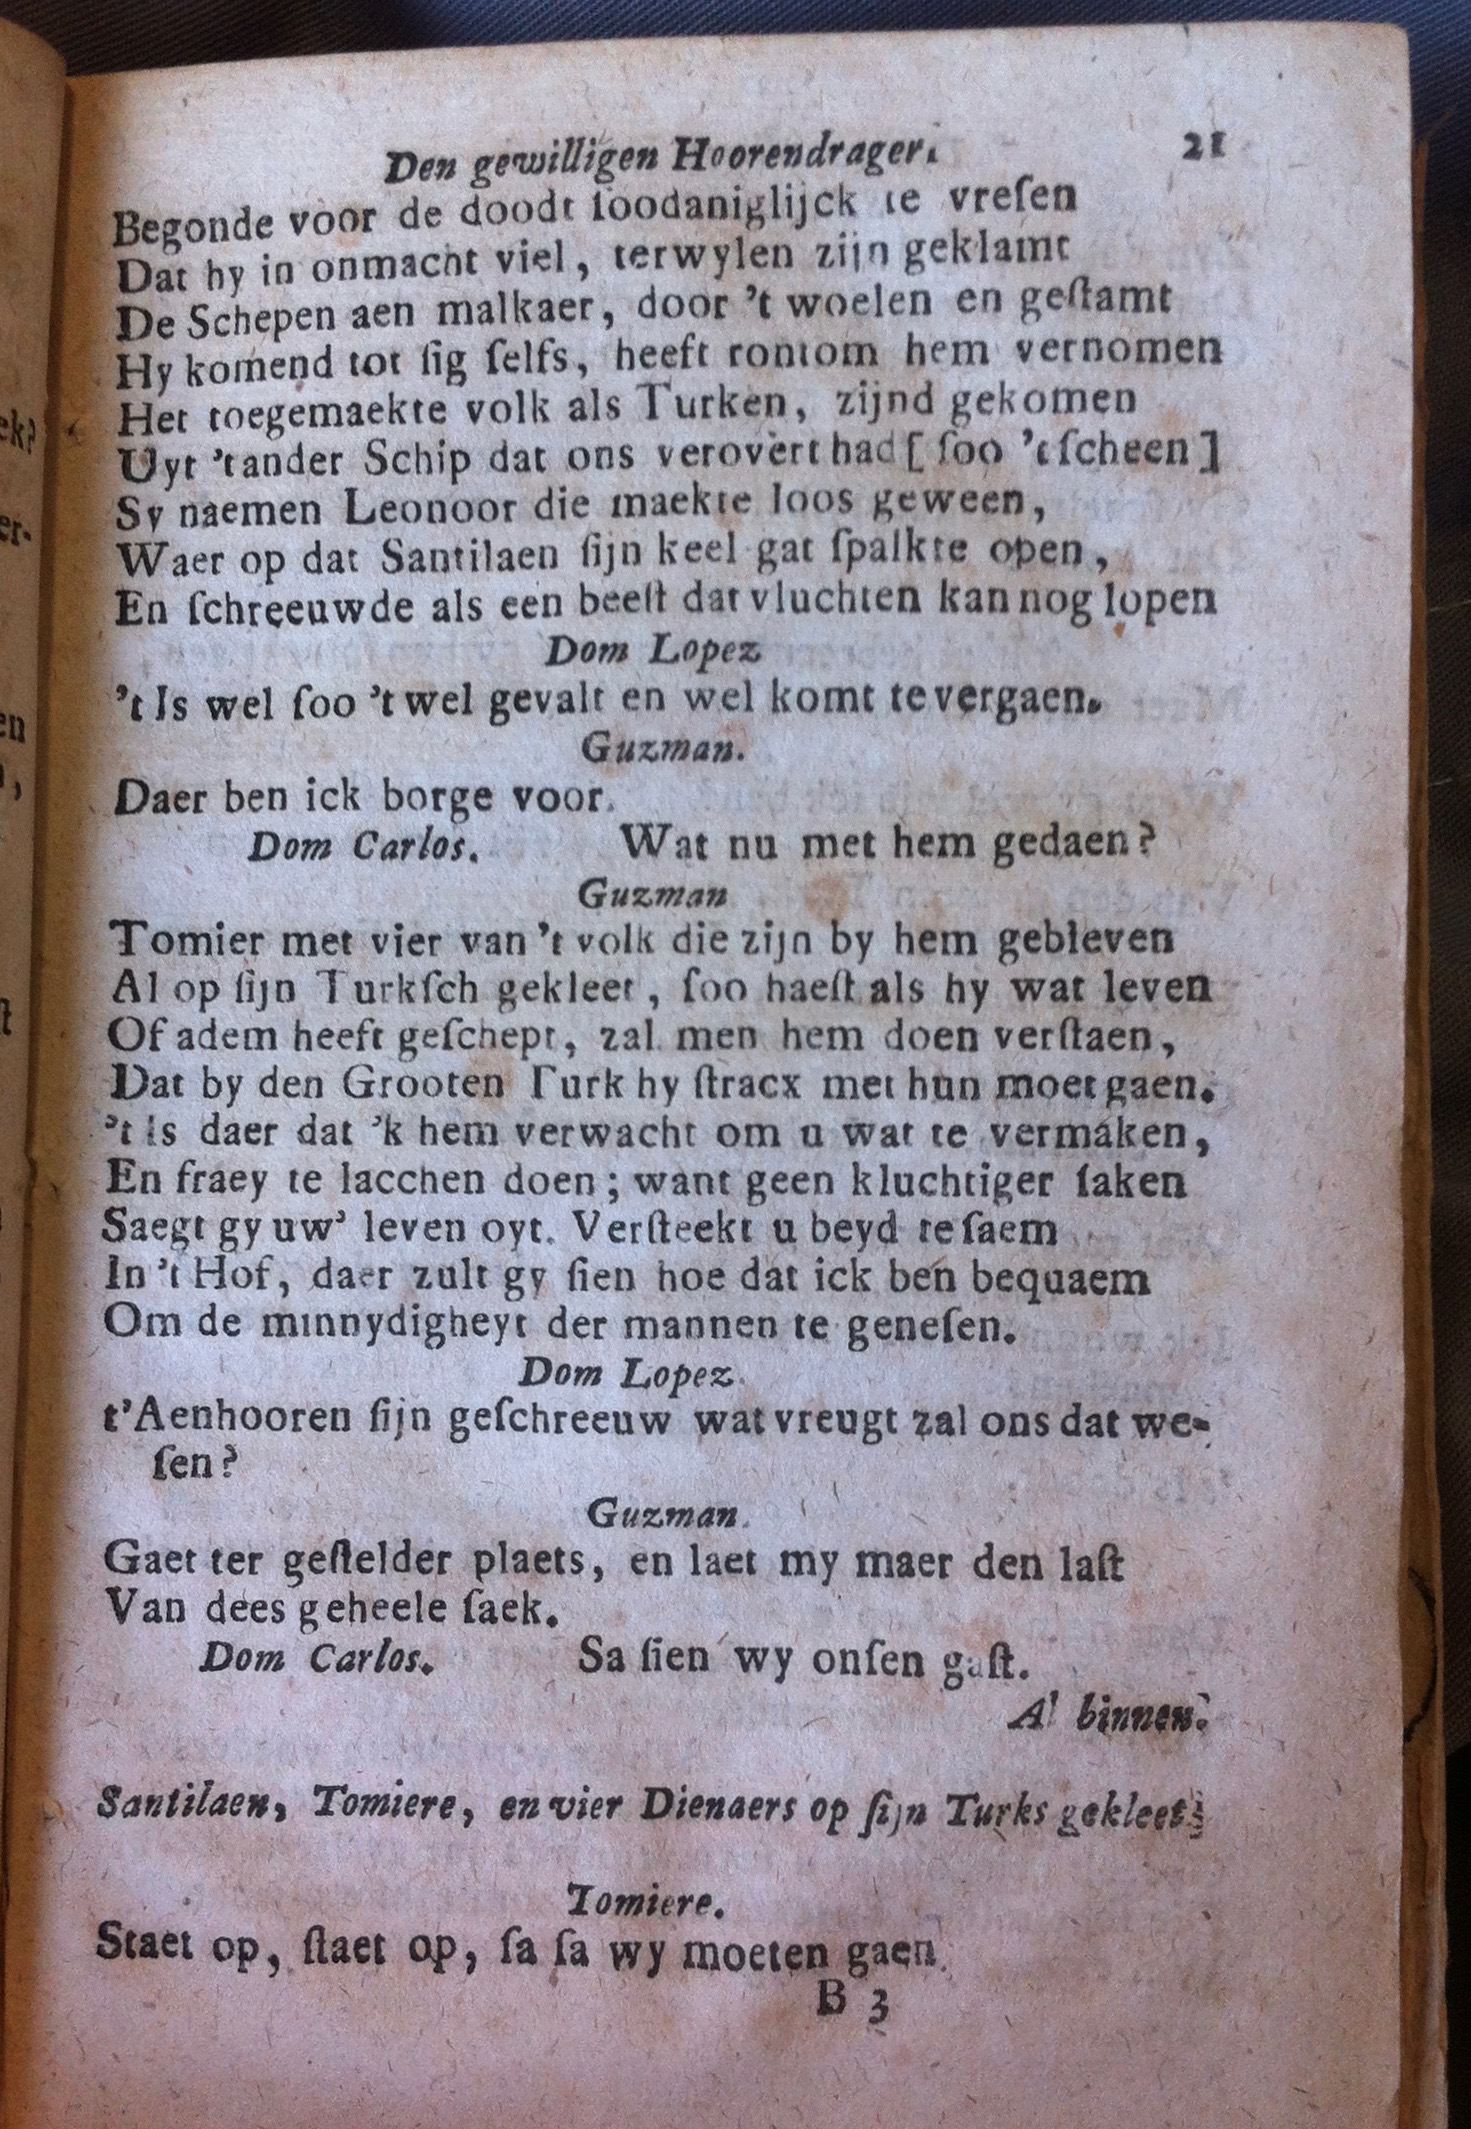 Den gewilligen Hoorendrager. 21
Begonde voor de doodt ſoodaniglijck te vreſen
Dat hy in onmacht viel, terwylen zijn geklamt
De Schepen aen malkaer, door 't woelen en geſtamt
Hy komend tot ſig ſelfs, heeft rontom hem vernomen
Het toegemaekte volk als Turken, zijnd gekomen
Uyt 't ander Schip dat ons verovert had [ ſoo 't ſcheen ]
Sy naemen Leonoor die maekte loos geween,
Waer op dat Santilaen ſijn keel gat ſpalkte open,
En ſchreeuwde als een beeſt dat vluchten kan nog lopen
Dom Lopez
't Is wel ſoo 't wel gevalt en wel komt te vergaen.
Guzman.
Daer ben ick borge voor.
Dom Carlos. Wat nu met hem gedaen?
Guzman
Tomier met vier van 't volk die zijn by hem gebleven
Al op ſijn Turkſch gekleet, ſoo haeſt als hy wat leven
Of adem heeft geſchept, zal men hem doen verſtaen,
Dat by den Grooten Turk hy ſtracx met hun moet gaen.
't Is daer dat 'k hem verwacht om u wat te vermaken,
En fraey te lacchen doen; want geen kluchtiger ſaken
Saegt gy uw' leven oyt. Verſteekt u beyd te ſaem
In 't Hof, daer zult gy ſien hoe dat ick ben bequaem
Om de minnydigheyt der mannen te geneſen.
Dom Lopez.
t'Aenhooren ſijn geſchreeuw wat vreugt zal ons dat we-
ſen?
Guzman.
Gaet ter geſtelder plaets, en laet my maer den laſt
Van dees geheele ſaek.
Dom Carlos. Sa ſien wy onſen gaſt.
Al binnen.
Santilaen, Tomiere, en vier Dienaers op ſijn Turks gekleet.
Tomiere.
Staet op, ſtaet op, ſa ſa wy moeten gaen.
B 3